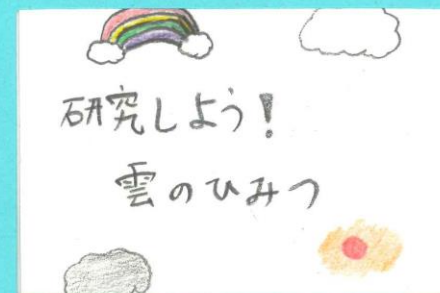 研究しよう!
雲のひみつ